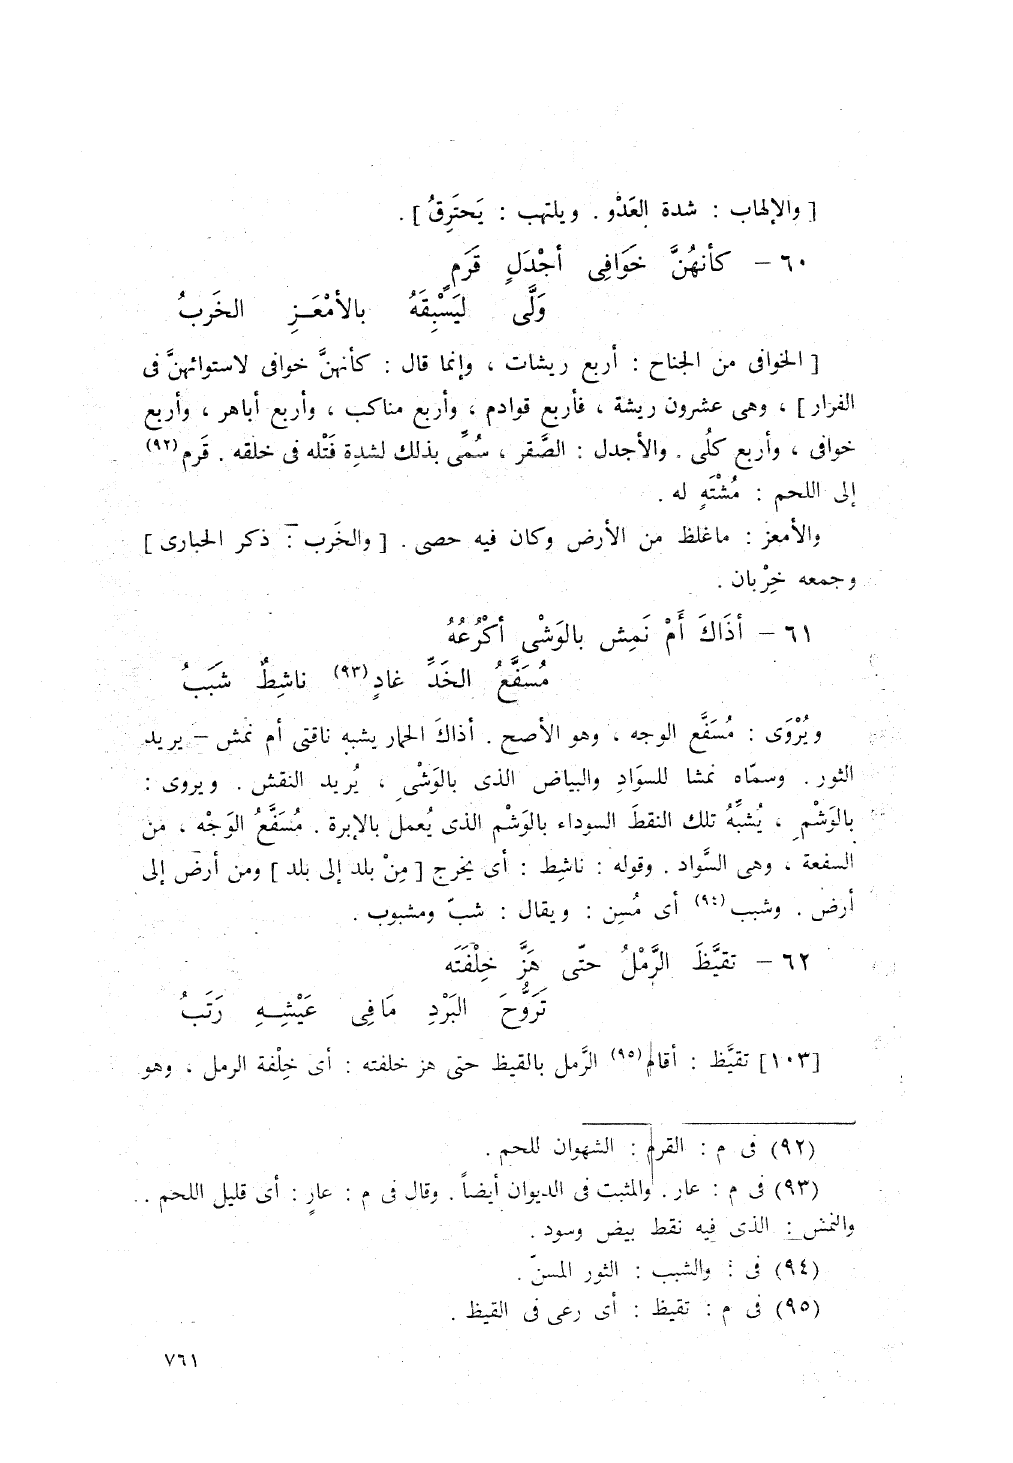 [ والإلهاب : شدة العَدْو . ويلتهب : يَحتَرِقُ ] .
٦٠ – كأنهُنَّ خَوَافِى أجْدَلٍ قَرَمٍ
وَلَّى لِيَسْبِقَهُ بالأمْعَـزِ الخَربُ
[ الخوافى من الجناح : أربع ريشات ، وإنما قال : كأنهنَّ خوافى لاستوائهنَّ فى
الفرار ] ، وهى عشرون ريشة ، فأربع قوادم ، وأربع مناكب ، وأربع أباهر ، وأربع
خوافى ، وأربع كلُى . والأجدل : الصَّقر ، سُمِّى بذلك لشدة فَتْله فى خلقه . قَرم (٩٢)
إلى اللحم : مُشْتَهٍ له .
والأمعز : ماغلظ من الأرض وكان فيه حصى . [ والخَرب : ذكر الحبارى ]
وجمعه خِرْبان .
٦١ – أذَاكَ أَمْ نَمِش بالوَشْى أكْرُعُهُ
مُسَفَّعُ الخَدِّ غادٍ (٩٣) ناشِطٌ شَبَبُ
ويُرْوَى : مُسَفَّع الوجه ، وهو الأصح . أذاكَ الحمار يشبه ناقتى أم نمش – يريد
الثور . وسمّاه نمشا للسوَادِ والبياض الذى بالوَشْىِ ، يُريد النقش . ويروى :
بالوَشْمِ ، يُشبِّهُ تلك النقطَ السوداء بالوَشْم الذى يُعمل بالإبرة . مُسَفَّعُ الوَجْه ، من
السفعة ، وهى السَّواد . وقوله : ناشِط : أى يخرج [ مِنْ بلد إلى بلد ] ومن أرض إلى
أرض . وشبب (٩٤) أى مُسِن : ويقال : شبّ ومشبوب .
٦٢ – تقيَّظَ الرَّمْلُ حتّى هَزَّ خِلْفَتَه
تَرَوُّحَ البَرْدِ مَا فِى عَيْشِـهِ رَتَبُ
[١٠٣] تقيَّظ : أقام (٩٥) الرَّمل بالقيظ حتى هز خلفته : أى خِلْفة الرمل ، وهو
(٩٢) فى م : القرم : الشهوان للحم .
(٩٣) فى م : عار . والمثبت فى الديوان أيضاً . وقال فى م : عارٍ : أى قليل اللحم ..
والنمش : الذى فيه نقط بيض وسود .
(٩٤) فى : والشبب : الثور المسنّ .
(٩٥) فى م : تقيظ : أى رعى فى القيظ .
٧٦١